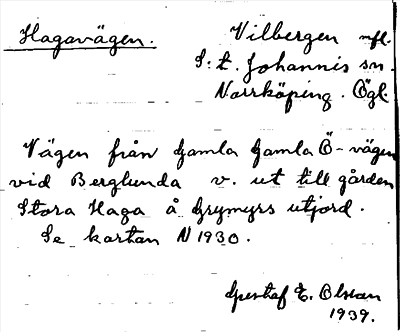 Hagavägen.
Vilbergen nfl.
S:t. Johannis sn.
Norrköping. Ögl.
Vägen från Gamla Gamla Ö-vägen
vid Berglunda v. ut till gården
Stora Haga å Grymyrs utjord.
Se kartan N 1930.
Gustaf E. Olsson
1939.